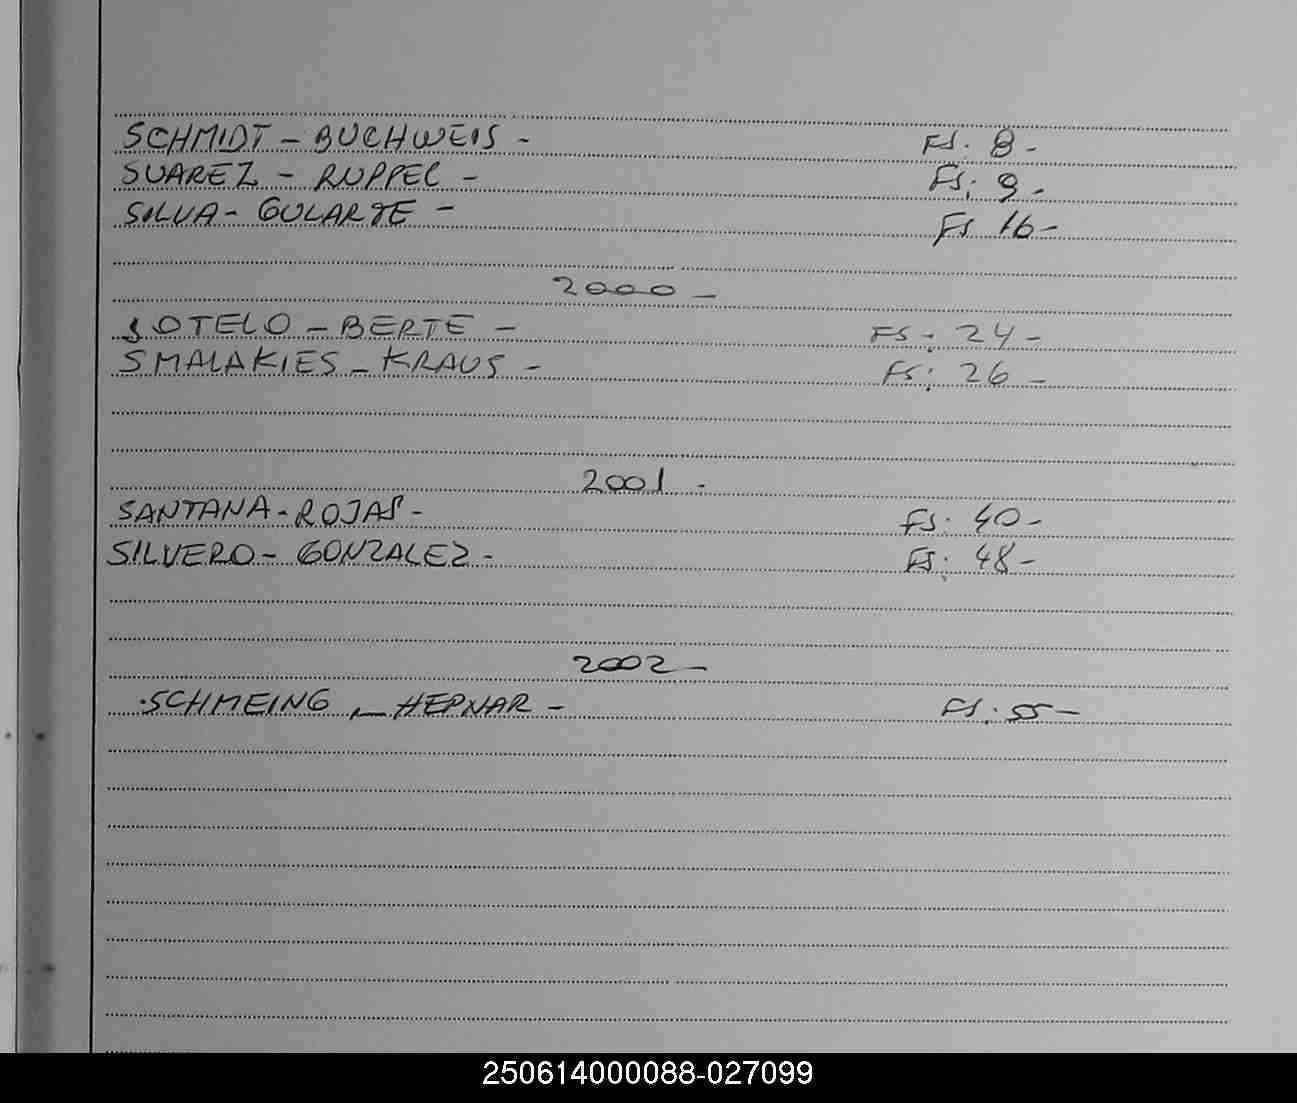 SCHMIDT - BUCHWEIS - FS. 8 -
SUAREZ - RUPPEL - FS. 9 -
SILVA - GULARTE - FS 16 -
2000 -
SOTELO - BERTE - FS. 24 -
SMALAKIES - KRAUS - FS. 26 -
2001 -
SANTANA - ROJAS - FS. 40 -
SILVERO - GONZALEZ - FS. 48 -
2002 -
SCHMEING - HEPNAR - FS. 55 -
250614000088-027099